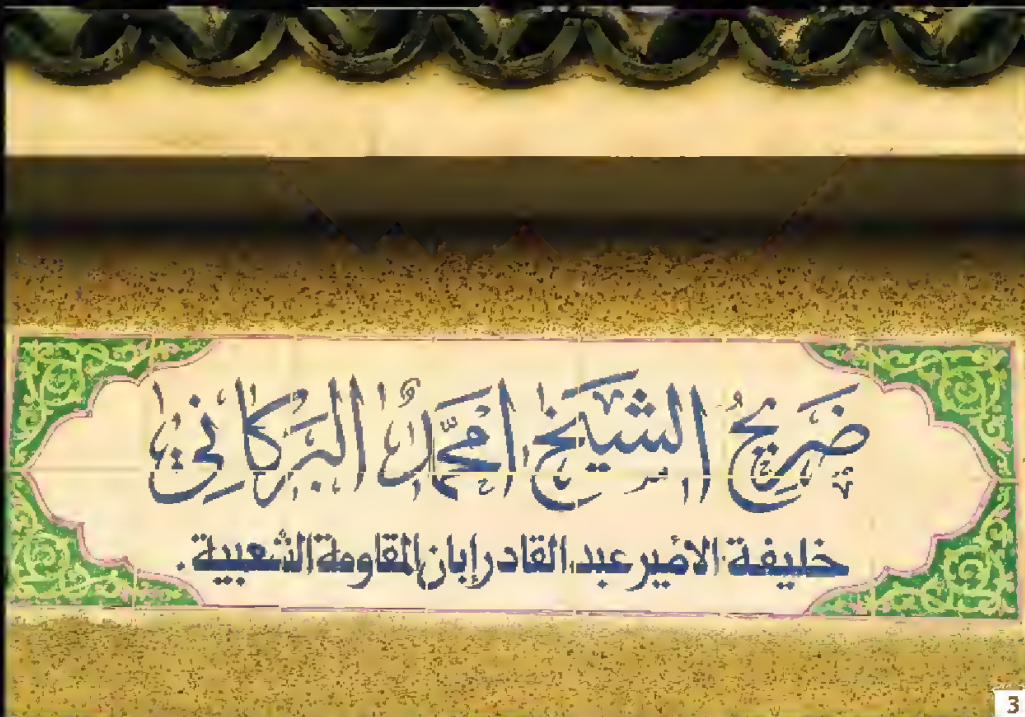 ضَريحُ الشَّيخ امحَمَّد البَركَاني
خليفة الأمير عبد القادر إبان المقاومة الشعبية.
3